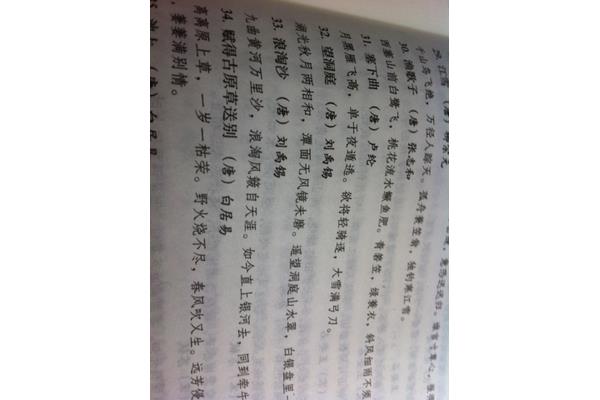 意恐迟迟归。谁言寸草心，
江雪 （唐）柳宗元
千山鸟飞绝，万径人踪灭。孤舟蓑笠翁，独钓寒江雪。
30. 渔歌子 （唐）张志和
西塞山前白鹭飞，桃花流水鳜鱼肥。青箬笠，绿蓑衣，斜风细雨不须
31. 塞下曲 （唐）卢纶
月黑雁飞高，单于夜遁逃。欲将轻骑逐，大雪满弓刀。
32. 望洞庭 （唐）刘禹锡
湖光秋月两相和，潭面无风镜未磨。遥望洞庭山水翠，白银盘里一
33. 浪淘沙 （唐）刘禹锡
九曲黄河万里沙，浪淘风簸自天涯。如今直上银河去，同到牵牛
34. 赋得古原草送别 （唐）白居易
离离原上草，一岁一枯荣。野火烧不尽，春风吹又生。远芳侵
萋萋满别情。
池上 （唐）白居易